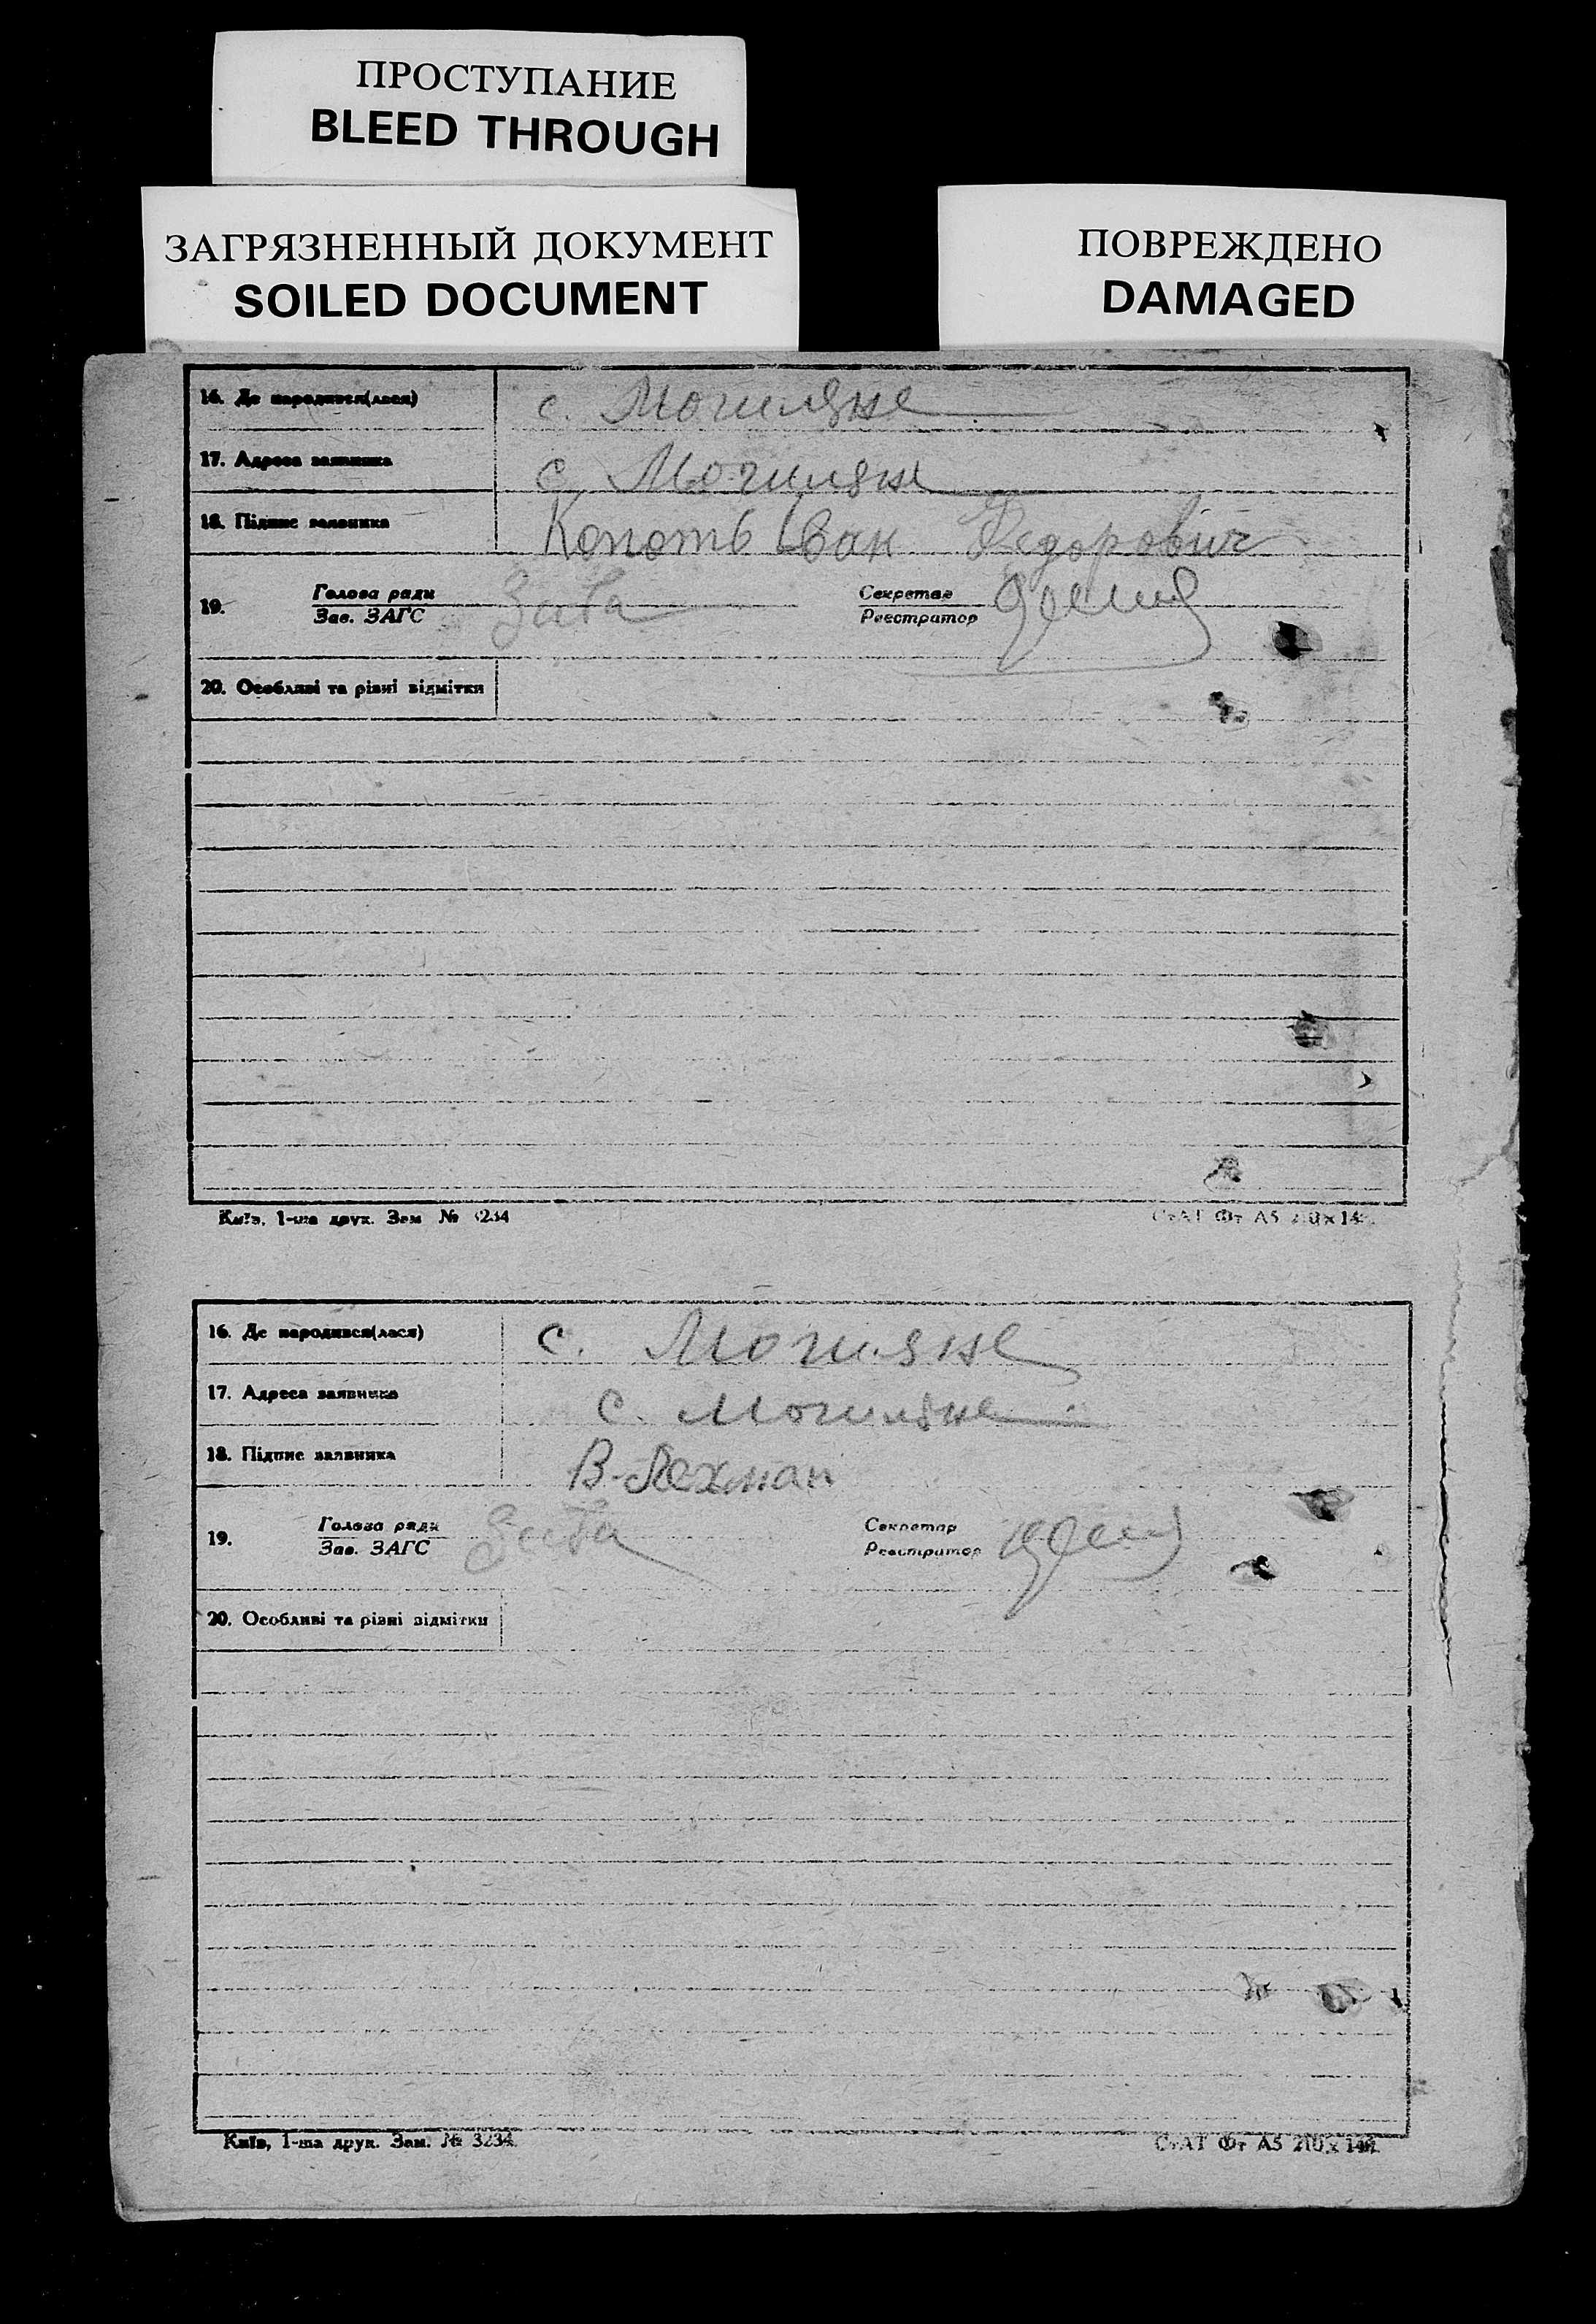 ПРОСТУПАНИЕ
BLEED THROUGH
ЗАГРЯЗНЕННЫЙ ДОКУМЕНТ
SOILED DOCUMENT
ПОВРЕЖДЕНО
DAMAGED
16. Де народився(лася) с. Могиляне
17. Адреса заявника с. Могиляне
18. Підпис заявника Копоть Іван Федорович
19. Голова ради Секретар
Зав. ЗАГС Реєстратор
20. Особливі та різні відмітки
Київ, 1-ша друк. Зам № 3234 СтАТ Фт А5 210x148
16. Де народився(лася) с. Могиляне
17. Адреса заявника с. Могиляне
18. Підпис заявника В. Лехман
19. Голова ради Секретар
Зав. ЗАГС Реєстратор
20. Особливі та різні відмітки
Київ, 1-ша друк. Зам. № 3234 СтАТ Фт А5 210x148